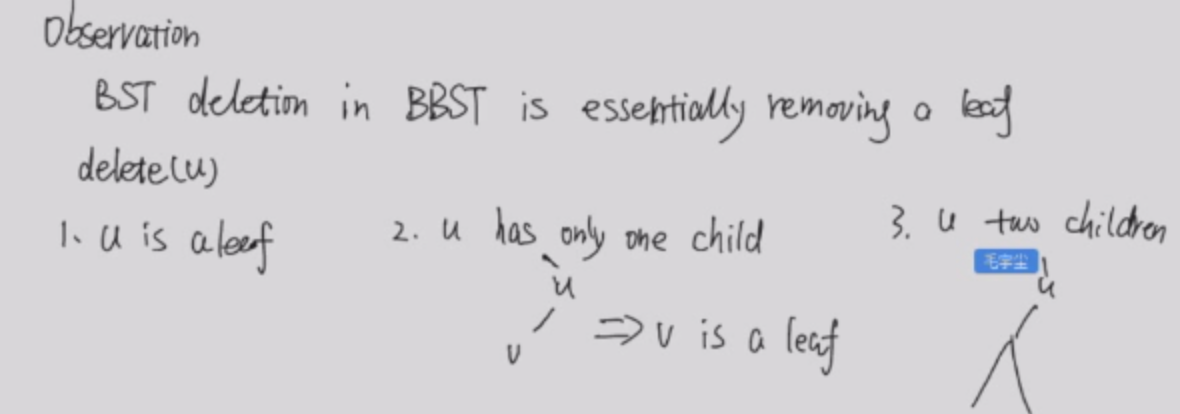 Observation
BST deletion in BBST is essentially removing a leaf
delete(u)
1. u is a leaf
2. u has only one child
u
v
⇒ v is a leaf
3. u two children
毛宇尘
u